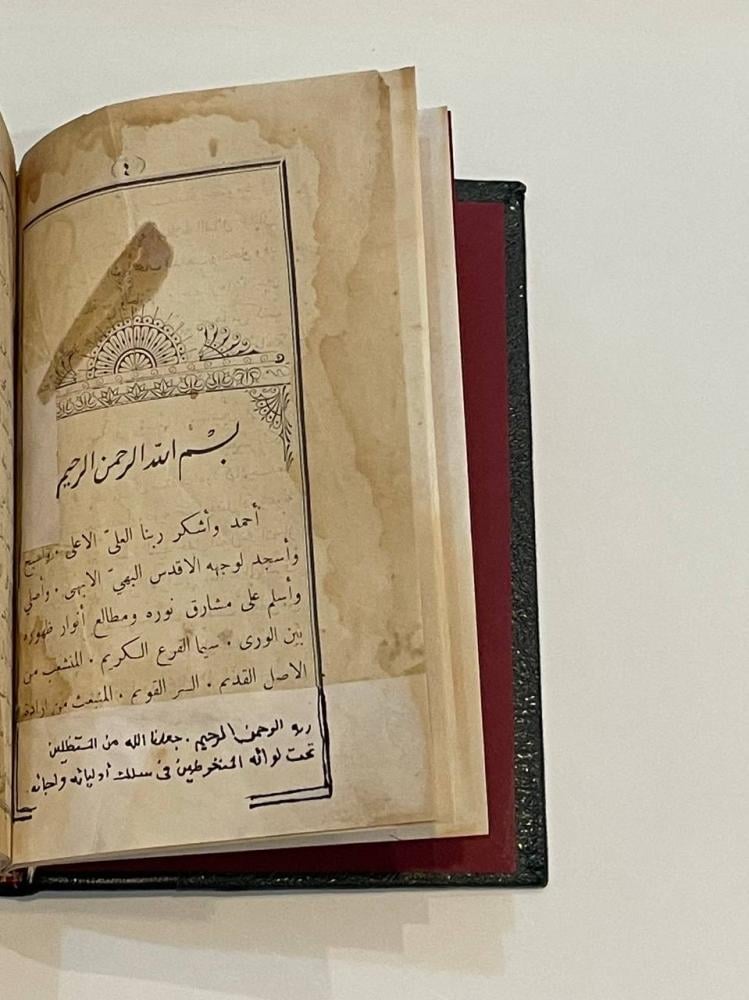 (٤)
بسم الله الرحمن الرحيم
أحمد وأشكر ربنا العليّ الاعلى . واسبح
وأسجد لوجهه الاقدس البهيّ الابهى . وأصلي
وأسلم على مشارق نوره ومطالع أنوار ظهوره
بين الورى . سيما الفرع الكريم . المنشعب من
الاصل القديم . السر القويم . المنبعث من ارادة
ربه الرحمن الرحيم . جعلنا الله من المستظلين
تحت لوائه المنخرطين فى سلك أوليائه واحبائه .